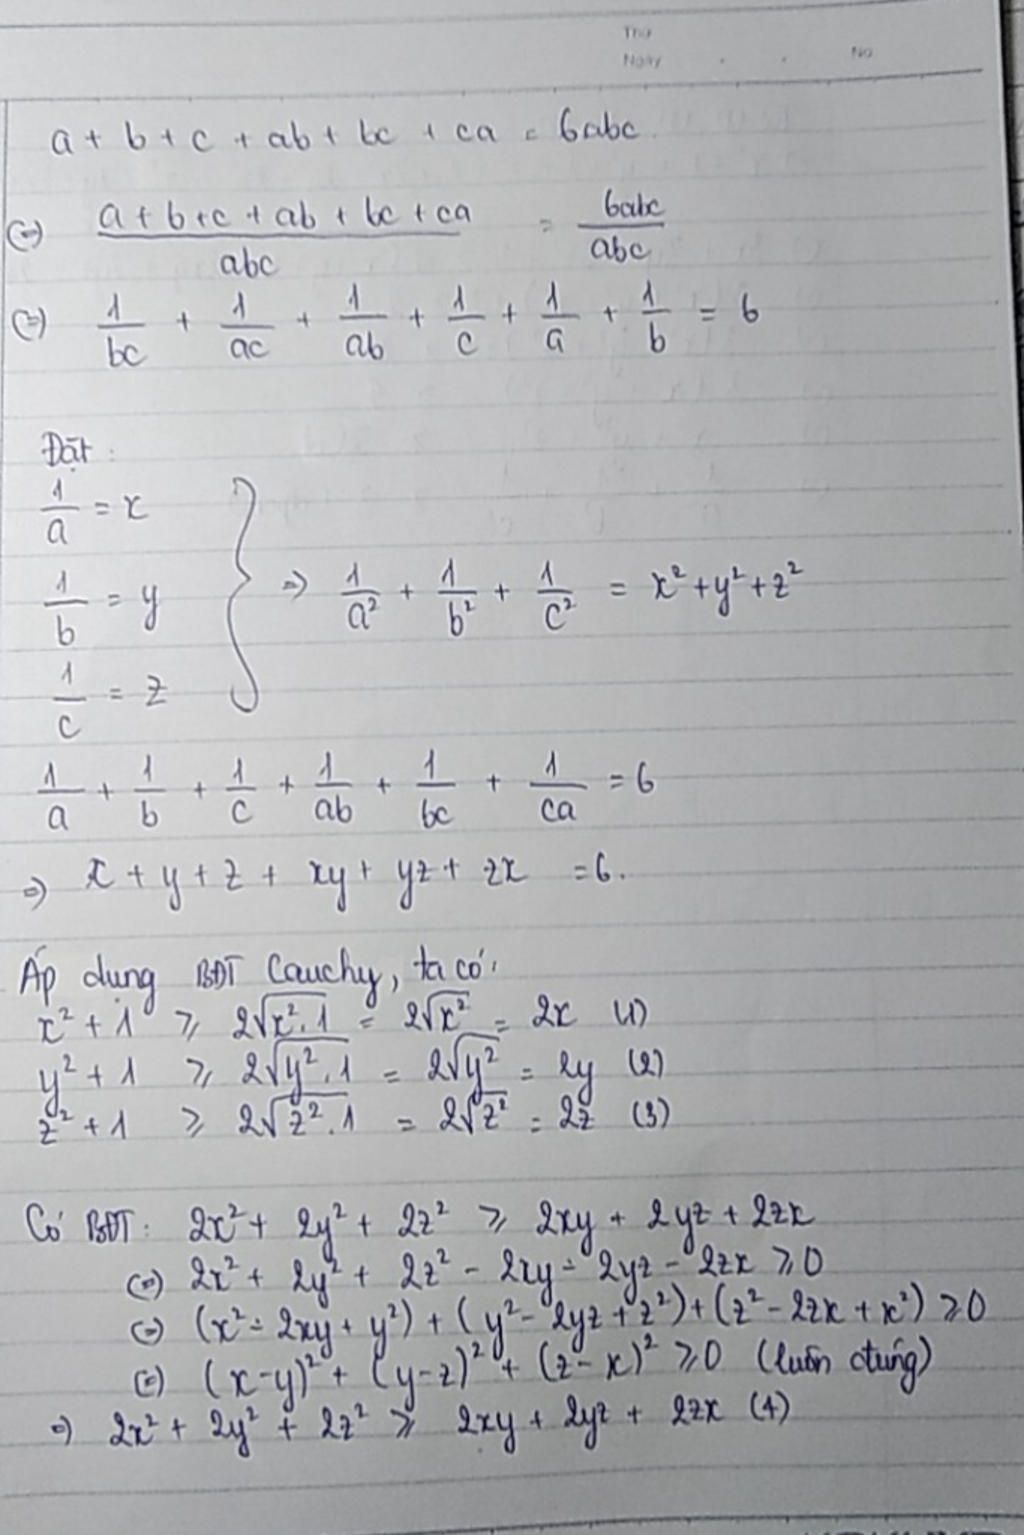 Thứ
Ngày . . No
a + b + c + ab + bc + ca = 6abc
(=) (a + b + c + ab + bc + ca)/abc = 6abc/abc
(=) 1/bc + 1/ac + 1/ab + 1/c + 1/a + 1/b = 6
Đặt:
1/a = x
1/b = y
1/c = z
} => 1/a² + 1/b² + 1/c² = x² + y² + z²
1/a + 1/b + 1/c + 1/ab + 1/bc + 1/ca = 6
=> x + y + z + xy + yz + zx = 6.
Áp dụng BĐT Cauchy, ta có:
x² + 1 ⩾ 2√(x².1) = 2√(x²) = 2x (1)
y² + 1 ⩾ 2√(y².1) = 2√(y²) = 2y (2)
z² + 1 ⩾ 2√(z².1) = 2√(z²) = 2z (3)
Có BĐT: 2x² + 2y² + 2z² ⩾ 2xy + 2yz + 2zx
(=) 2x² + 2y² + 2z² - 2xy - 2yz - 2zx ⩾ 0
(=) (x² - 2xy + y²) + (y² - 2yz + z²) + (z² - 2zx + x²) ⩾ 0
(=) (x-y)² + (y-z)² + (z-x)² ⩾ 0 (luôn đúng)
=> 2x² + 2y² + 2z² ⩾ 2xy + 2yz + 2zx (4)